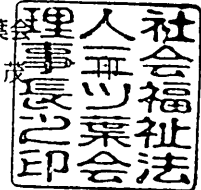 社会福祉法
人ツ葉会
理事長之印
茂